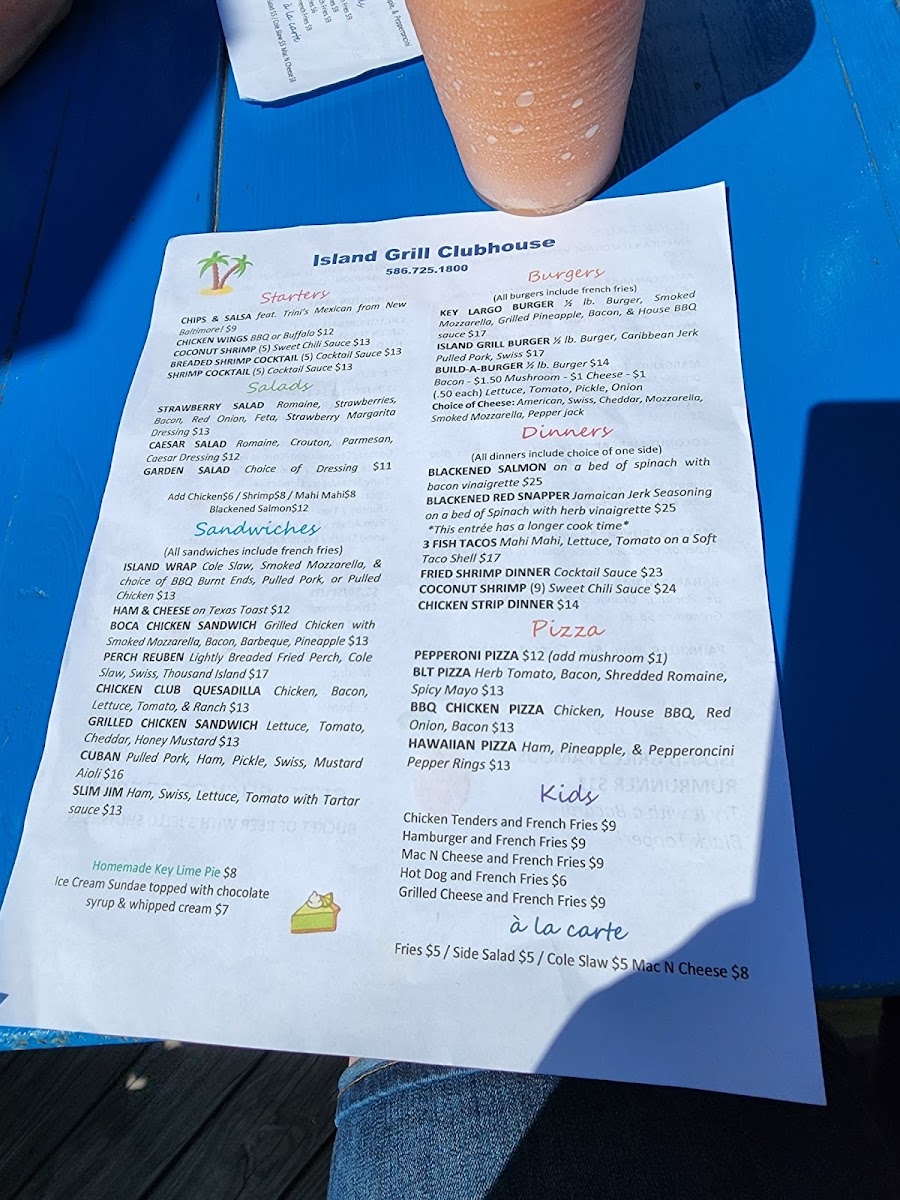 Island Grill Clubhouse
586.725.1800
Starters
CHIPS & SALSA feat. Trini's Mexican from New
Baltimore! $9
CHICKEN WINGS BBQ or Buffalo $12
COCONUT SHRIMP (5) Sweet Chili Sauce $13
BREADED SHRIMP COCKTAIL (5) Cocktail Sauce $13
SHRIMP COCKTAIL (5) Cocktail Sauce $13
Salads
STRAWBERRY SALAD Romaine, Strawberries,
Bacon, Red Onion, Feta, Strawberry Margarita
Dressing $13
CAESAR SALAD Romaine, Crouton, Parmesan,
Caesar Dressing $12
GARDEN SALAD Choice of Dressing $11
Add Chicken$6 / Shrimp$8 / Mahi Mahi$8
Blackened Salmon$12
Sandwiches
(All sandwiches include french fries)
ISLAND WRAP Cole Slaw, Smoked Mozzarella, &
choice of BBQ Burnt Ends, Pulled Pork, or Pulled
Chicken $13
HAM & CHEESE on Texas Toast $12
BOCA CHICKEN SANDWICH Grilled Chicken with
Smoked Mozzarella, Bacon, Barbeque, Pineapple $13
PERCH REUBEN Lightly Breaded Fried Perch, Cole
Slaw, Swiss, Thousand Island $17
CHICKEN CLUB QUESADILLA Chicken, Bacon,
Lettuce, Tomato, & Ranch $13
GRILLED CHICKEN SANDWICH Lettuce, Tomato,
Cheddar, Honey Mustard $13
CUBAN Pulled Pork, Ham, Pickle, Swiss, Mustard
Aioli $16
SLIM JIM Ham, Swiss, Lettuce, Tomato with Tartar
sauce $13
Homemade Key Lime Pie $8
Ice Cream Sundae topped with chocolate
syrup & whipped cream $7
Burgers
(All burgers include french fries)
KEY LARGO BURGER ½ lb. Burger, Smoked
Mozzarella, Grilled Pineapple, Bacon, & House BBQ
sauce $17
ISLAND GRILL BURGER ½ lb. Burger, Caribbean Jerk
Pulled Pork, Swiss $17
BUILD-A-BURGER ½ lb. Burger $14
Bacon - $1.50 Mushroom - $1 Cheese - $1
(.50 each) Lettuce, Tomato, Pickle, Onion
Choice of Cheese: American, Swiss, Cheddar, Mozzarella,
Smoked Mozzarella, Pepper jack
Dinners
(All dinners include choice of one side)
BLACKENED SALMON on a bed of spinach with
bacon vinaigrette $25
BLACKENED RED SNAPPER Jamaican Jerk Seasoning
on a bed of Spinach with herb vinaigrette $25
*This entrée has a longer cook time*
3 FISH TACOS Mahi Mahi, Lettuce, Tomato on a Soft
Taco Shell $17
FRIED SHRIMP DINNER Cocktail Sauce $23
COCONUT SHRIMP (9) Sweet Chili Sauce $24
CHICKEN STRIP DINNER $14
Pizza
PEPPERONI PIZZA $12 (add mushroom $1)
BLT PIZZA Herb Tomato, Bacon, Shredded Romaine,
Spicy Mayo $13
BBQ CHICKEN PIZZA Chicken, House BBQ, Red
Onion, Bacon $13
HAWAIIAN PIZZA Ham, Pineapple, & Pepperoncini
Pepper Rings $13
Kids
Chicken Tenders and French Fries $9
Hamburger and French Fries $9
Mac N Cheese and French Fries $9
Hot Dog and French Fries $6
Grilled Cheese and French Fries $9
à la carte
Fries $5 / Side Salad $5 / Cole Slaw $5 Mac N Cheese $8